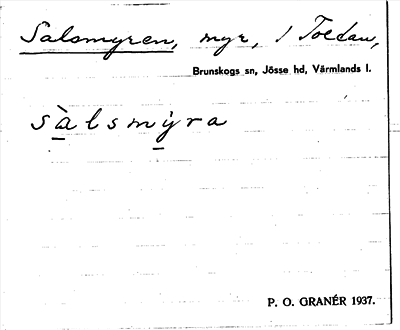 Salsmyren, myr, 1 Toedau,
Brunskogs sn, Jösse hd, Värmlands l.
sàlsmỳra
P. O. GRANÉR 1937.